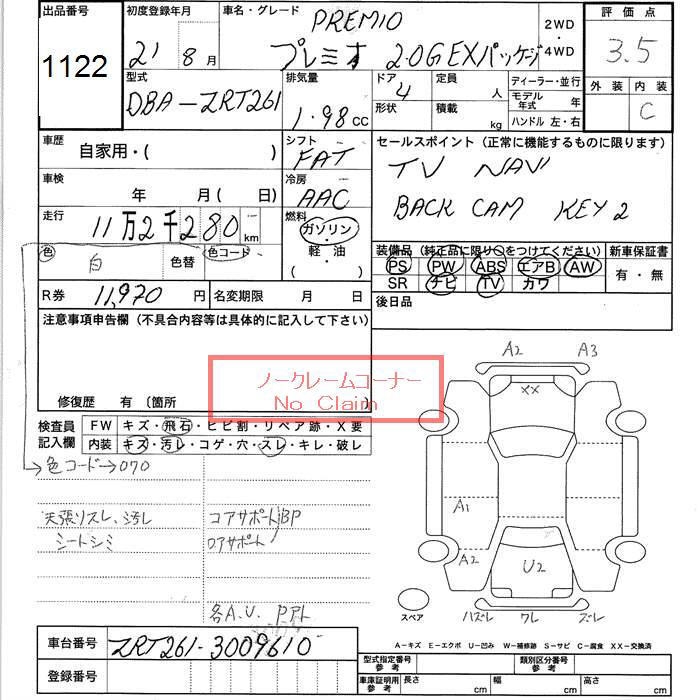 出品番号 初度登録年月 車名・グレード PREMIO 2WD・4WD 評価点
1122 21 8月 プレミオ 2.0G EXパッケージ 3.5
型式 排気量 ドア 定員 人 ディーラー・並行 外装 内装
DBA-ZRT261 1.98 CC 4 形状 積載 kg モデル年式 年 ハンドル 左・右 C
車歴 自家用・( ) シフト FAT セールスポイント(正常に機能するものに限ります)
車検 年 月( 日) 冷房 AAC TV NAVI
走行 11万2千280 km 燃料 ガソリン・軽・油 BACK CAM KEY 2
色 白 色替 色コード 装備品(純正品に限り○をつけてください) 新車保証書
PS PW ABS エアB AW 有・無
SR ナビ TV カワ
R券 11,970 円 名変期限 月 日 後日品
注意事項申告欄(不具合内容等は具体的に記入して下さい)
ノークレームコーナー
No Claim
修復歴 有 (箇所
検査員記入欄 FW キズ・飛石・ヒビ割・リペア跡・X要
内装 キズ・汚レ・コゲ・穴・スレ・キレ・破レ
色コード→070
天張リスレ、汚レ コアサポートBP
シートシミ ロアサポート
各A.U.
A2 A3
XX
A1
A2 U2
スペア ハズレ ワレ ズレ
A-キズ E-エクボ U-凹み W-補修跡 S-サビ C-腐食 XX-交換済
車台番号 ZRT261-3009610
登録番号
型式指定番号 参考 類別区分番号 参考
車庫証明用 参考 長さ cm 幅 cm 高さ cm